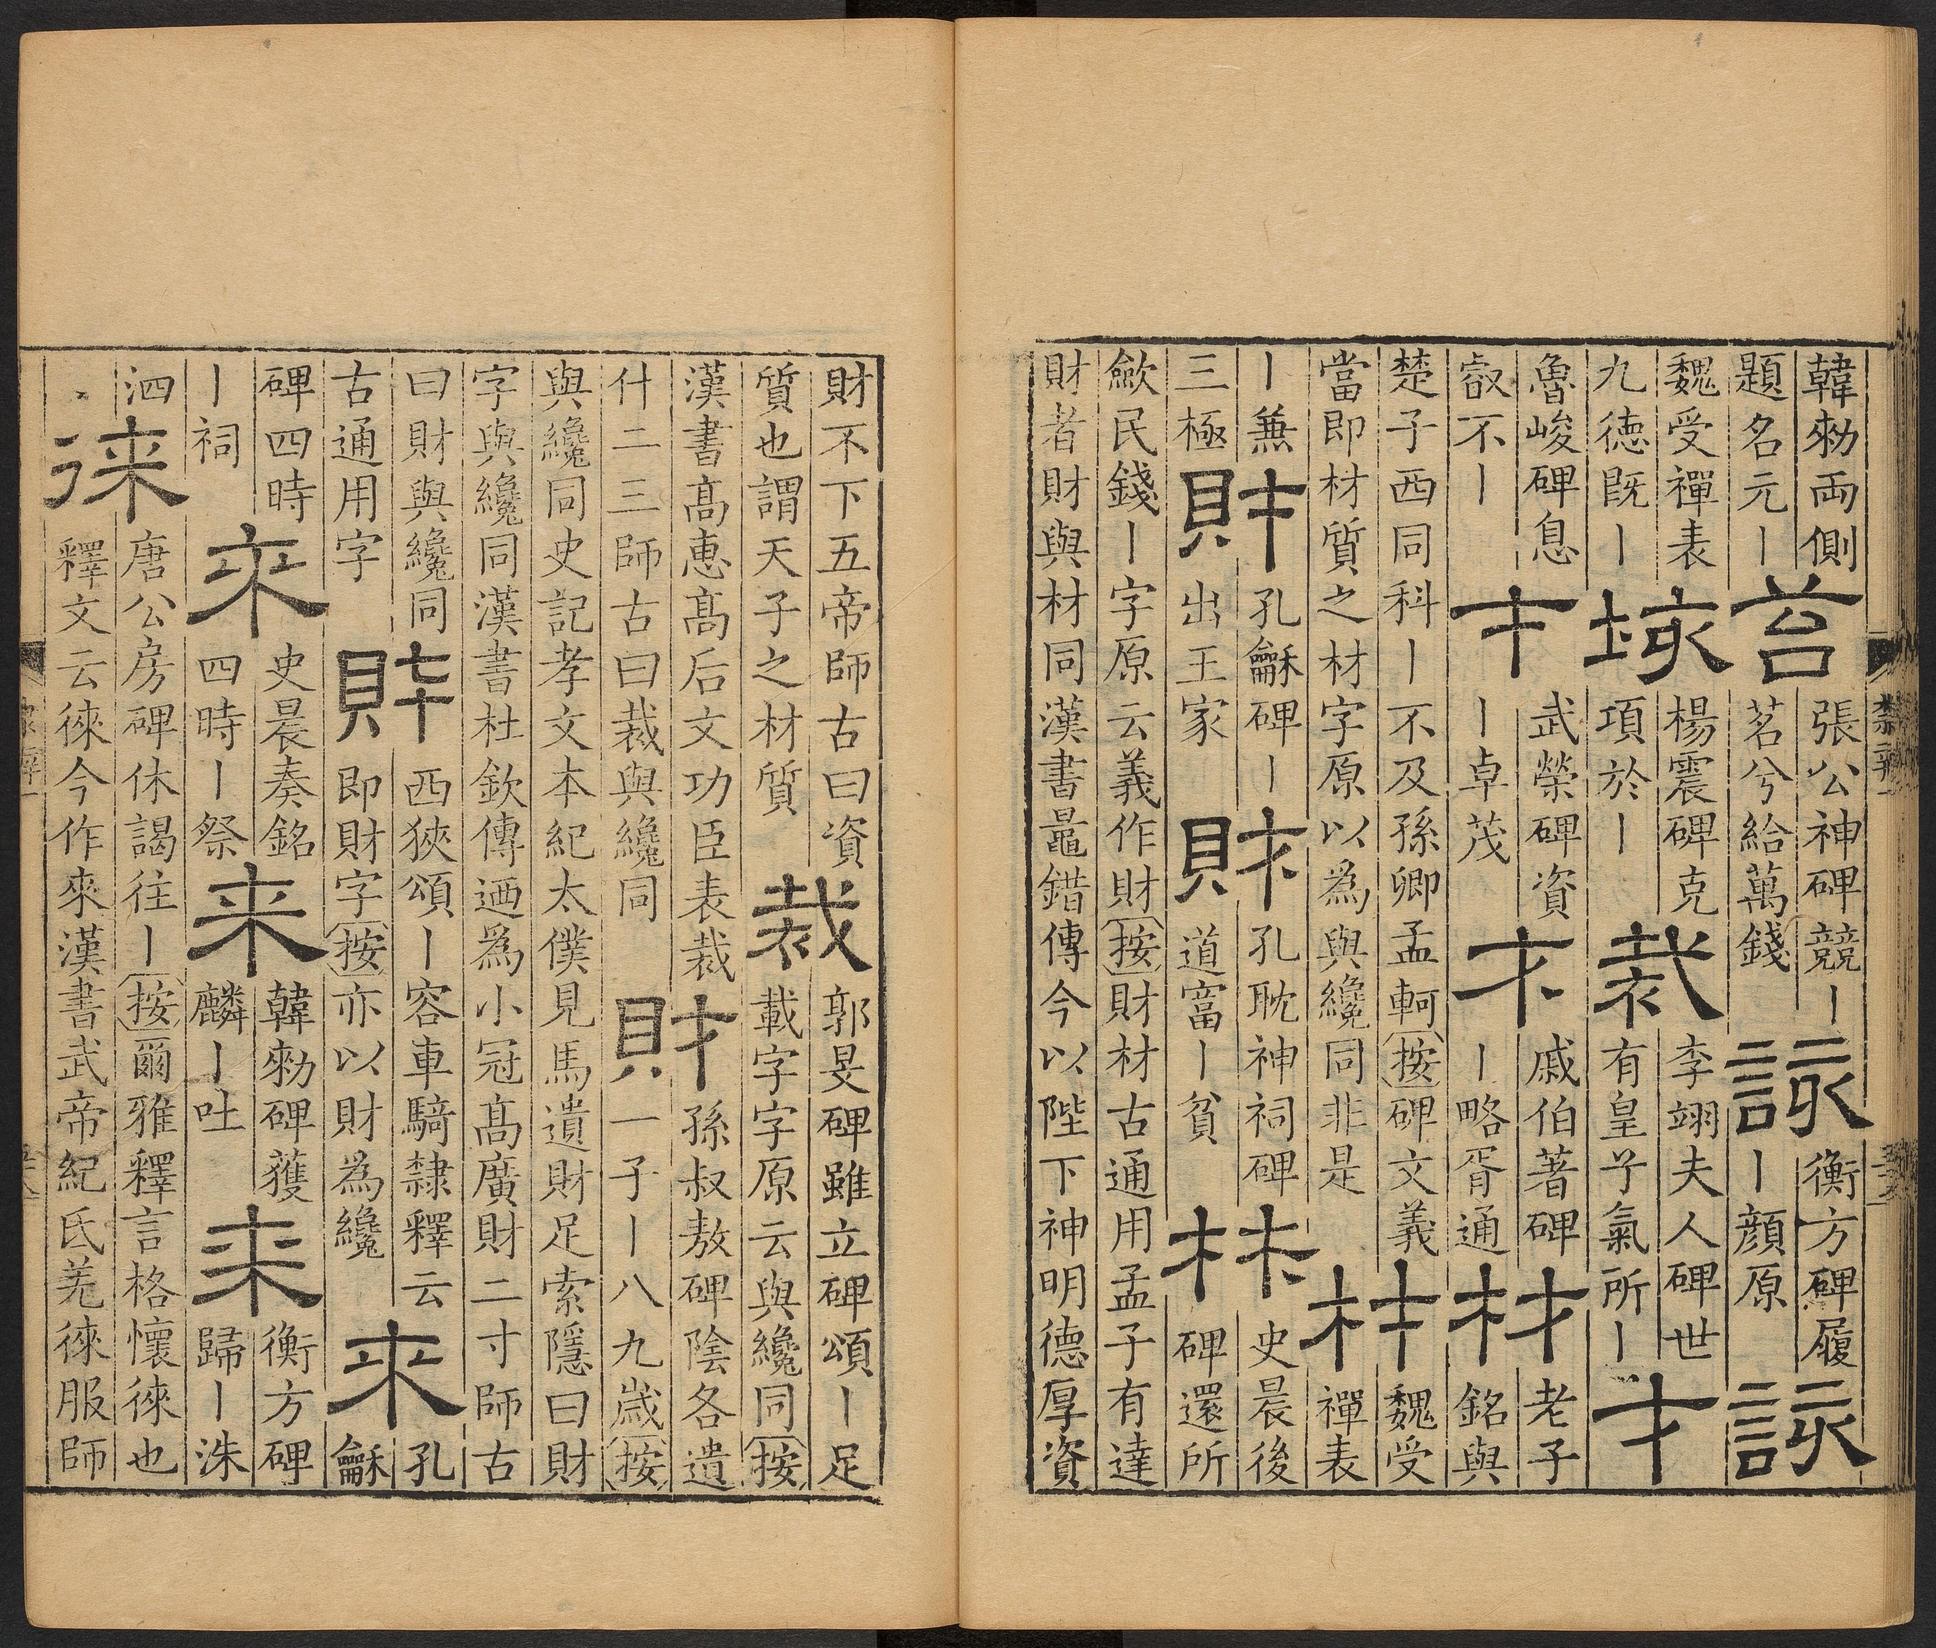 韓勑兩側
題名元丨
苔
張公神碑競丨
茗兮給萬錢
該
衡方碑履
丨顔原
該
魏受禪表
九徳既丨
垓
楊震碑克
項於丨
裁
李翊夫人碑世
有皇兮氣所丨
才
魯峻碑息
叡不丨
才
武榮碑資
丨卓茂
才
戚伯著碑
丨略胥通
材
老子
銘與
楚子西同科丨不及孫卿孟軻按碑文義
當即材質之材字原以為與纔同非是
材
魏受
禪表
丨兼
三極
財
孔龢碑丨
出王家
財
孔耽神祠碑
道富丨貧
材
史晨後
碑還所
歛民錢丨字原云義作財按財材古通用孟子有達
財者財與材同漢書鼂錯傳今以陛下神明德厚資
財不下五帝師古曰資
質也謂天子之材質
裁
郭旻碑雖立碑頌丨足
載字字原云與纔同按
漢書高惠高后文功臣表裁
什二三師古曰裁與纔同
財
孫叔敖碑陰各遺
一子丨八九歲按
與纔同史記孝文本紀太僕見馬遺財足索隱曰財
字與纔同漢書杜欽傳迺為小冠高廣財二寸師古
曰財與纔同
古通用字
財
西狹頌丨容車騎隸釋云
即財字按亦以財為纔
來
孔
龢
碑四時
丨祠
來
史晨奏銘
四時丨祭
来
韓勑碑獲
麟丨吐
来
衡方碑
歸丨洙
泗
徠
唐公房碑休謁往丨按爾雅釋言格懷徠也
釋文云徠今作來漢書武帝紀氐羌徠服師